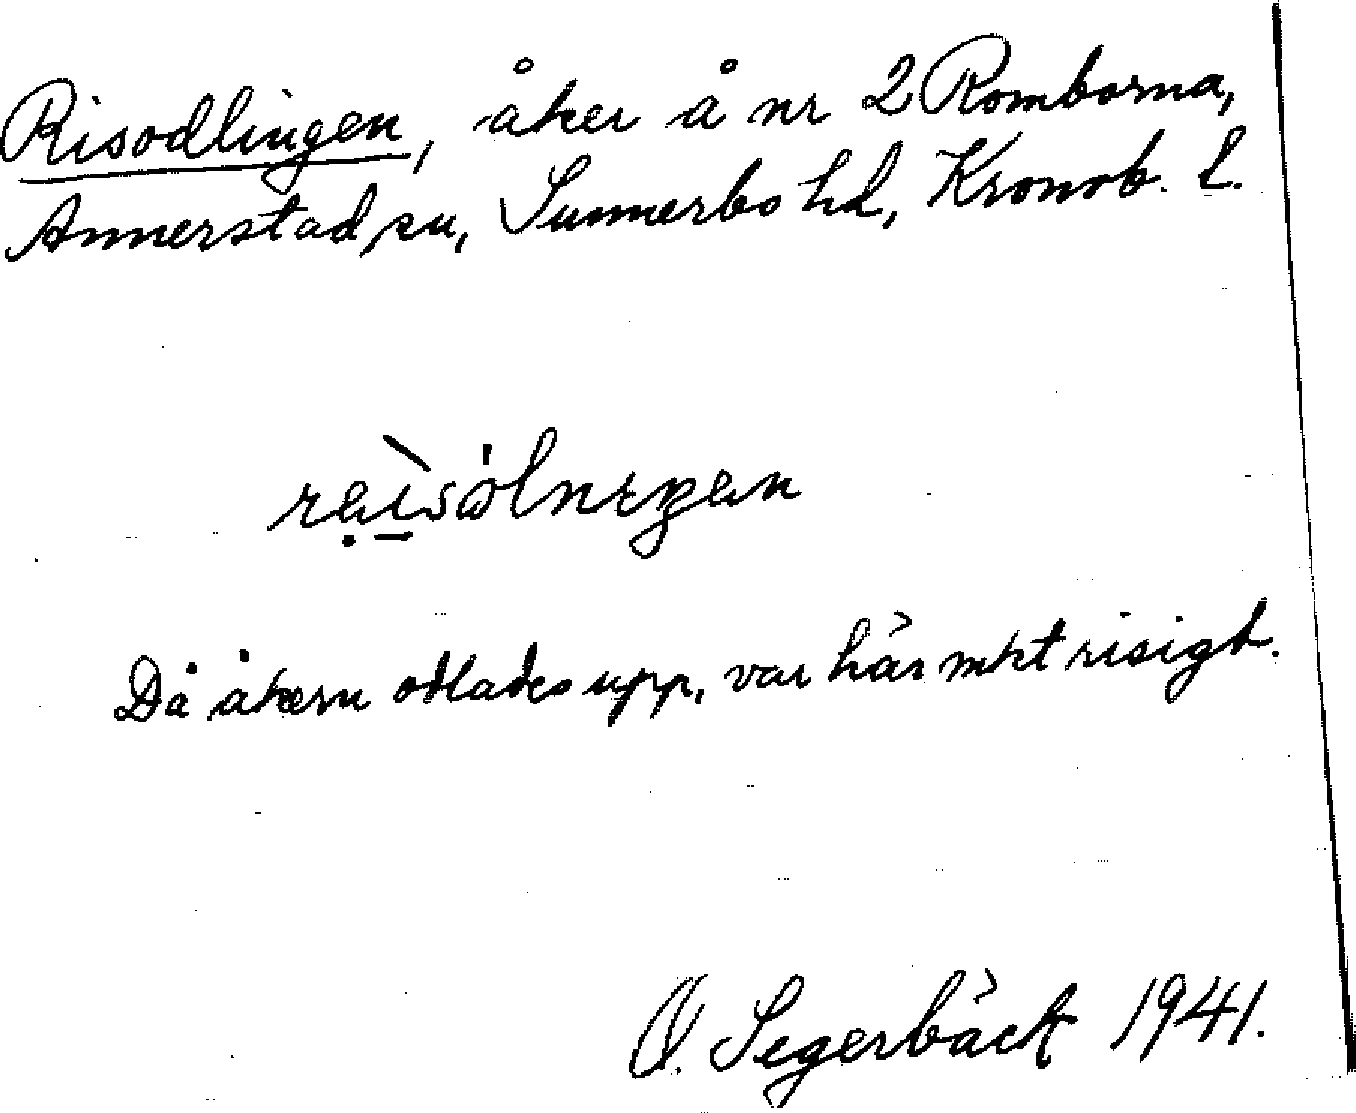 Risodlingen, åker å nr 2 Romborna,
Annerstad sn, Sunnerbo hd, Kronob. L.
Då åkern odlades upp, var här mkt risigt.
O. Segerbäck 1941.